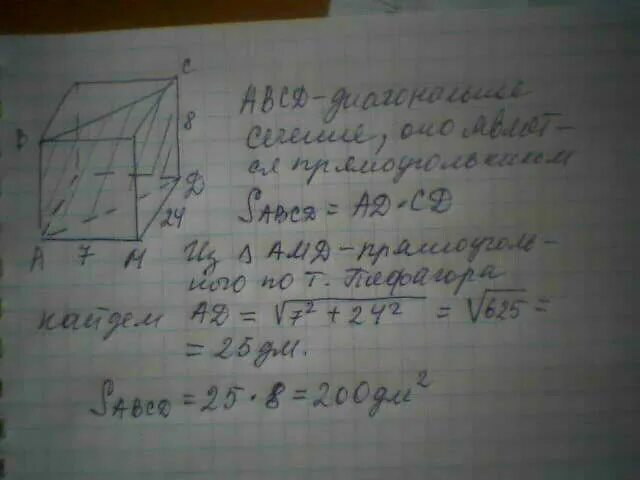 C
B
8
D
24
A 7 M
ABCD - диагональное
сечение, оно являет-
ся прямоугольником
S ABCD = AD · CD
Из Δ AMD - прямоуголь-
ного по т. Пифагора
найдем AD = √7² + 24² = √625 =
= 25 дм.
S ABCD = 25 · 8 = 200 дм²